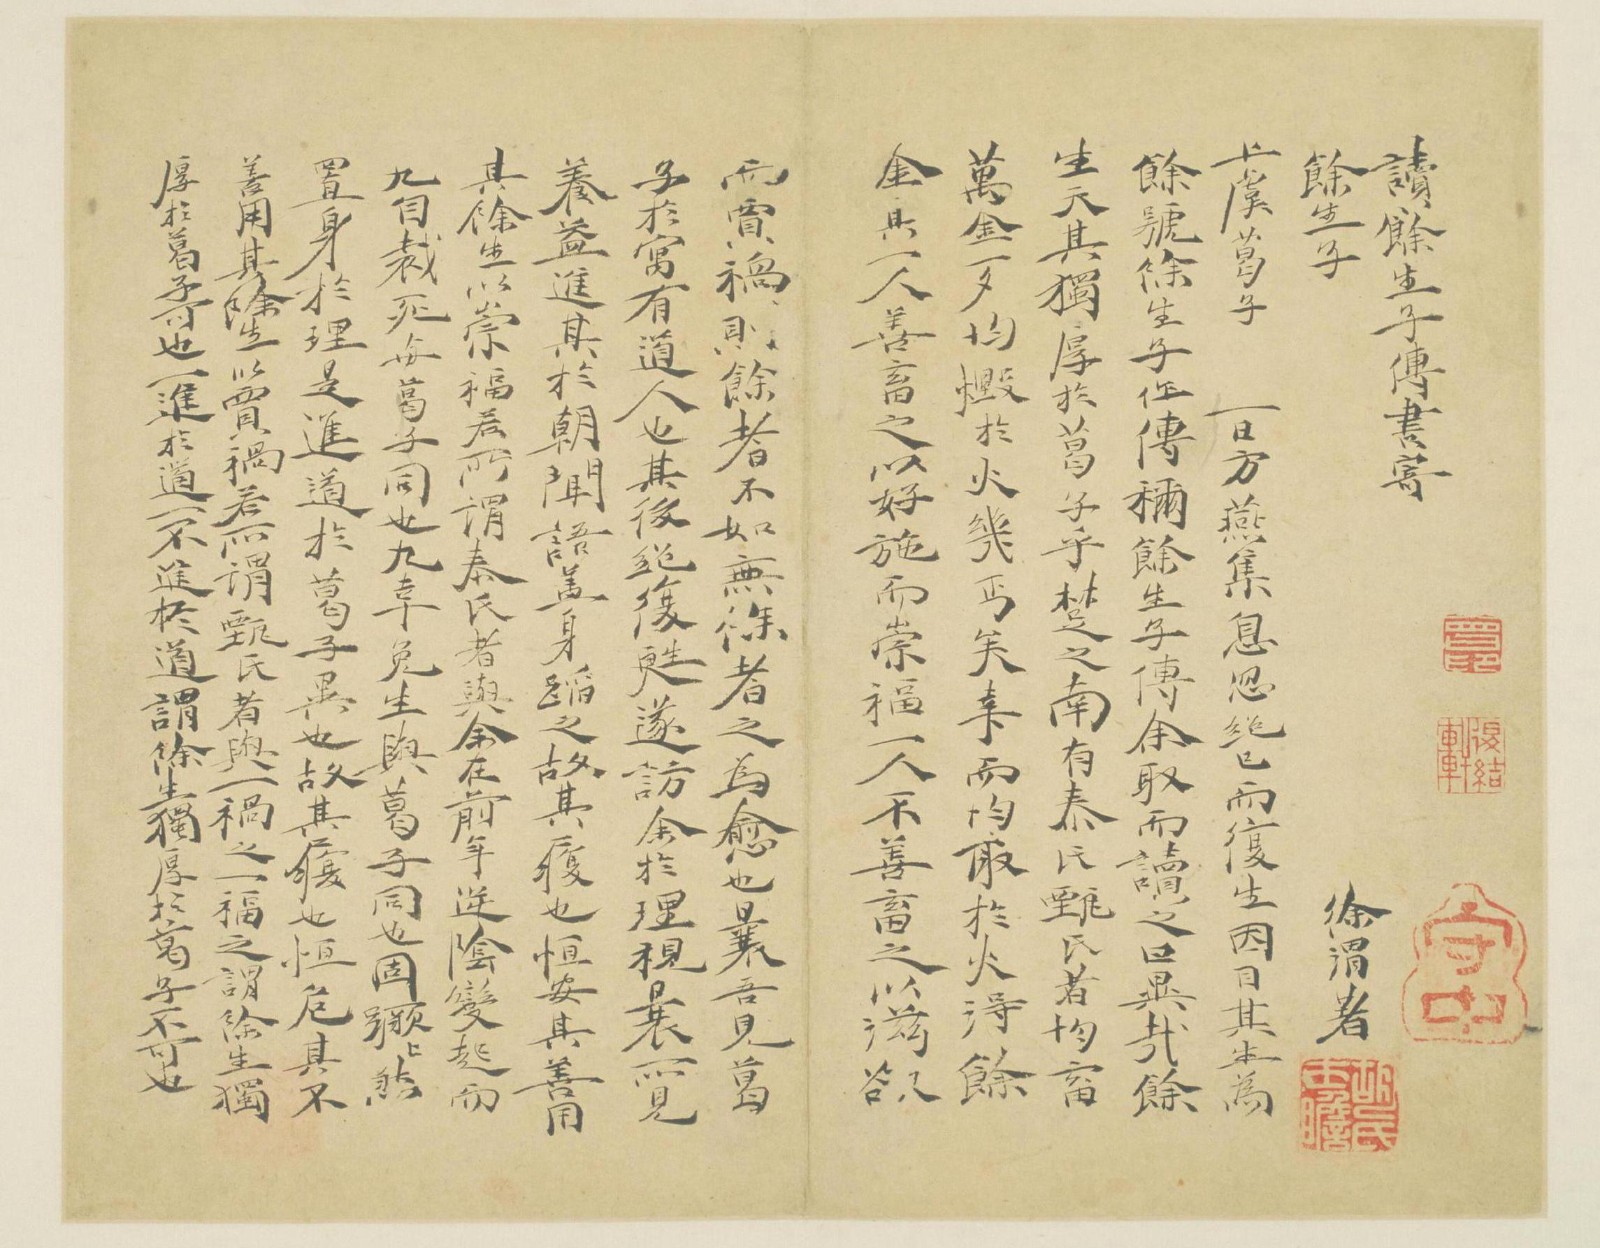 讀餘生子傳書寄
餘生子
徐渭著
上虞葛子 一日方燕集息忽絕已而復生因目其生為
餘號餘生子作傳稱餘生子傳余取而讀之曰異哉餘
生天其獨厚於葛子乎楚之南有泰氏甄氏者均畜
萬金一夕均燬於火幾丐矣幸而均取於火得餘
金其一人善畜之以好施而崇福一人不善畜之以滋欲
而賈禍則餘者不如無餘者之為愈也曩吾見葛
子於寓有道人也其後絕復甦遂訪余於理視曩所見
養益進其於朝聞語蓋身蹈之故其履也恒安其善用
其餘生以崇福若所謂泰氏者與余在前年逆陰變起而
九自裁死與葛子同也九幸免生與葛子同也因蹶上然
置身於理是進道於葛子異也故其履也恒危其不
善用其餘生以賈禍若所謂甄氏者與一禍之一福之謂餘生獨
厚於葛子可也一進於道一不進於道謂餘生獨厚於葛子不可也
守中